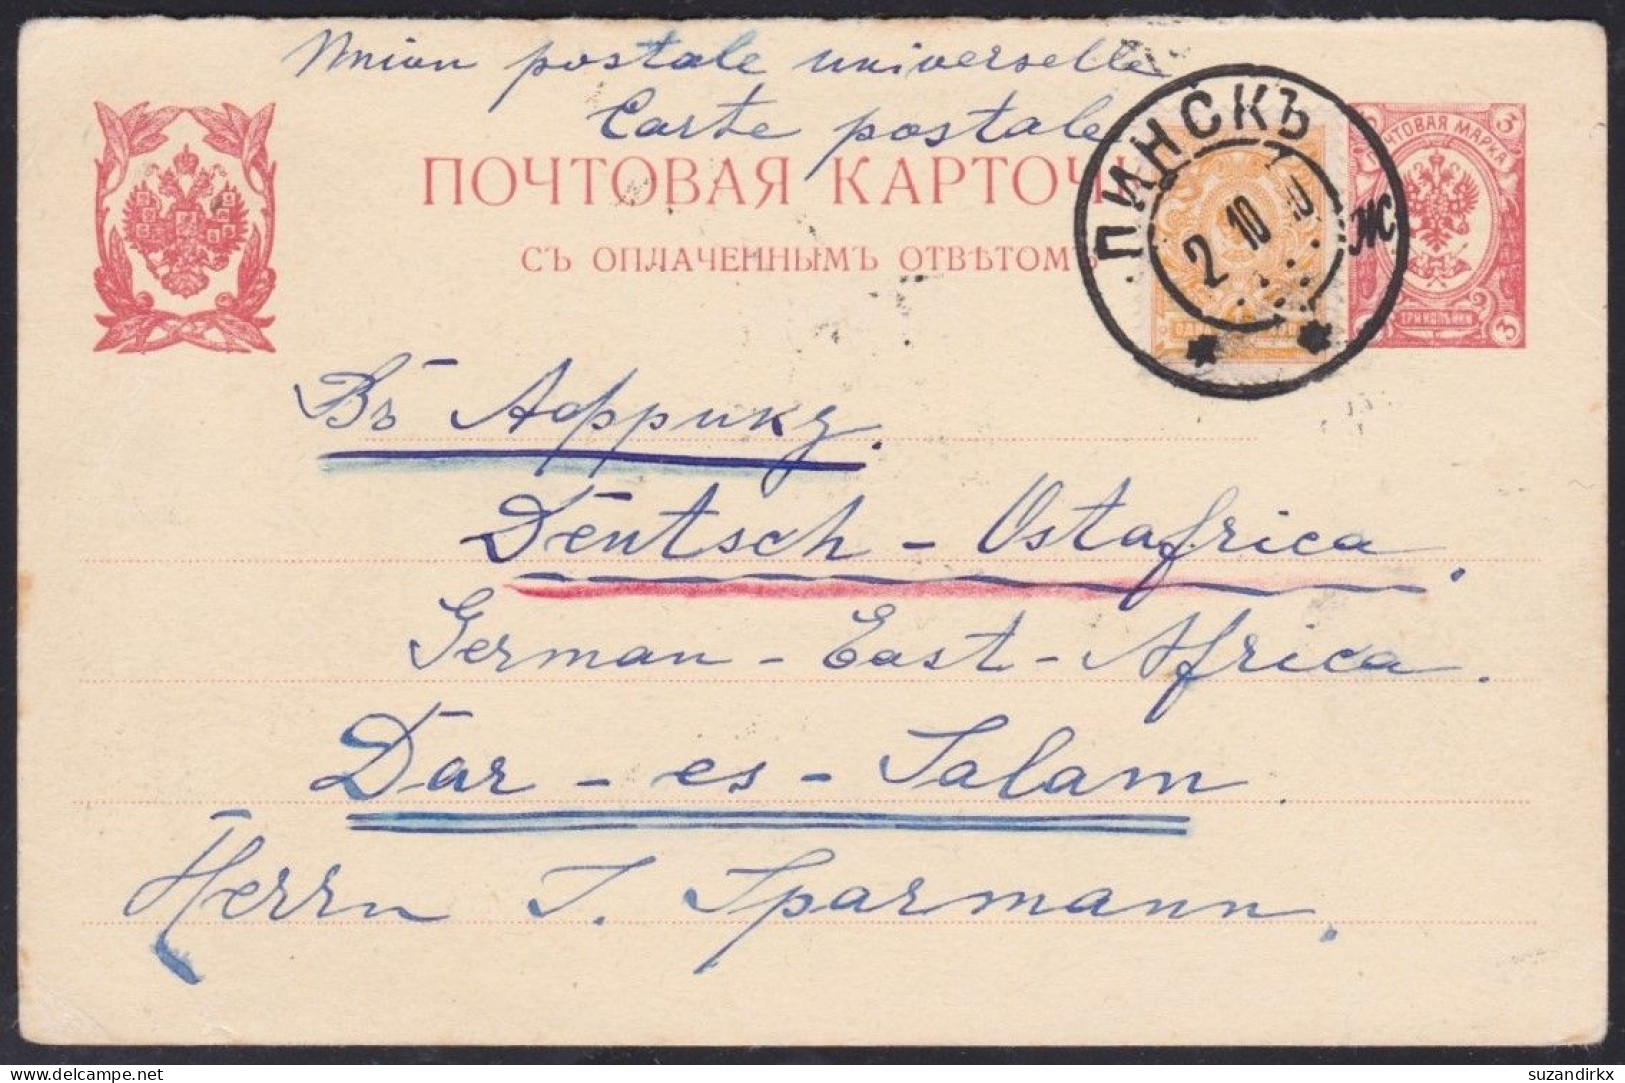 Union postale universelle
Carte postale
ПОЧТОВАЯ КАРТОЧ
СЪ ОПЛАЧЕННЫМЪ ОТВѢТОМЪ
ПИНСКЪ
2 10 10
Ж
3
ПОЧТОВАЯ МАРКА
3
ТРИ КОПѢЙКИ
3
Въ Африку.
Deutsch - Ostafrica.
German - East - Africa.
Dar - es - Salam
Herrn J. Sparmann.
suzandirkx